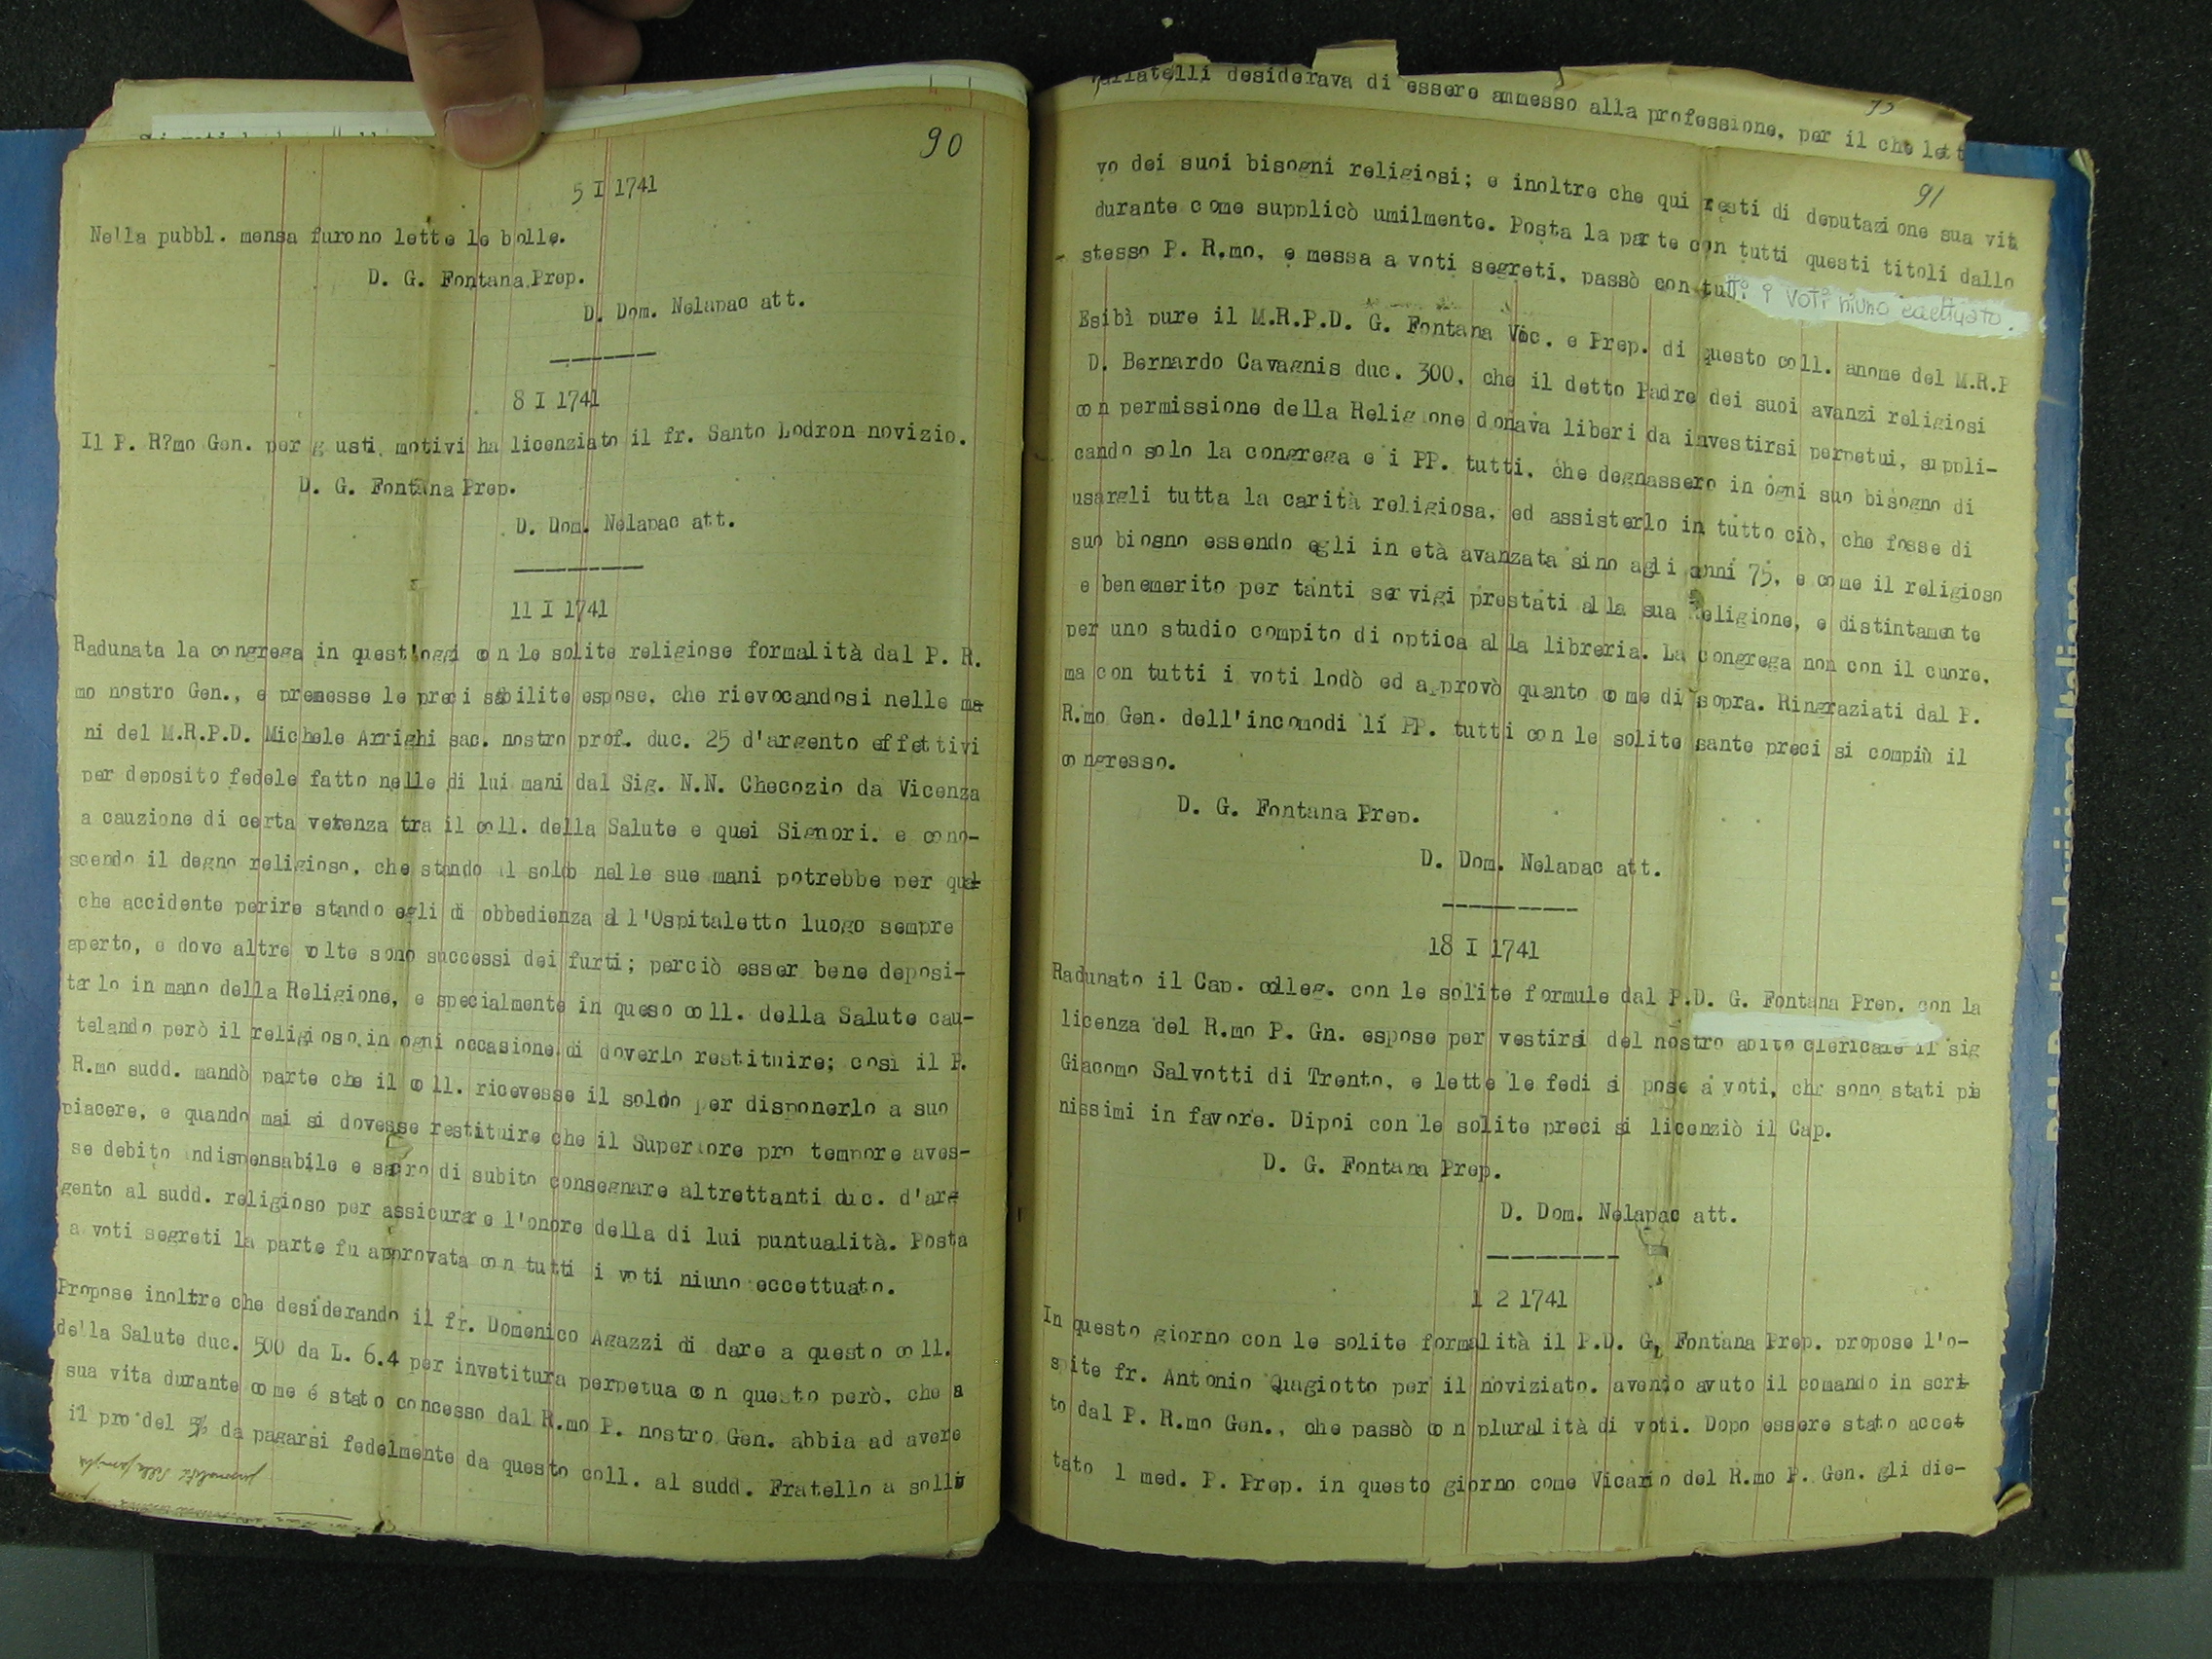 90
5 I 1741
Nella pubbl. mensa furono lette le bolle.
D. G. Fontana Prep.
D. Dom. Nelapac att.
8 I 1741
Il P. R?mo Gen. per g usti motivi ha licenziato il fr. Santo Lodron novizio.
D. G. Fontana Prep.
D. Dom. Nelapac att.
11 I 1741
Radunata la congrega in quest'oggi con le solite religiose formalità dal P. R.
mo nostro Gen., e premesse le preci stabilite espose, che rievocandosi nelle ma
ni del M.R.P.D. Michele Arrighi sac. nostro prof. duc. 25 d'argento effettivi
per deposito fedele fatto nelle di lui mani dal Sig. N.N. Checozio da Vicenza
a cauzione di certa vetenza tra il coll. della Salute e quei Signori. e cono-
scendo il degno religioso, che stando il soldo nelle sue mani potrebbe per qual
che accidente perire stando egli di obbedienza all'Ospitaletto luogo sempre
aperto, e dove altre volte sono successi dei furti; perciò esser bene deposi-
tarlo in mano della Religione, e specialmente in queso coll. della Salute cau-
telando però il religioso in ogni occasione di doverlo restituire; così il P.
R.mo sudd. mandò parte che il coll. ricevesse il soldo per disponerlo a suo
piacere, e quando mai si dovesse restituire che il Superiore pro tempore aves-
se debito indispensabile e sacro di subito consegnare altrettanti duc. d'ar
gento al sudd. religioso per assicurare l'onore della di lui puntualità. Posta
a voti segreti la parte fu approvata con tutti i voti niuno eccettuato.
Propose inoltre che desiderando il fr. Domenico Agazzi di dare a questo coll.
della Salute duc. 500 da L. 6.4 per invetitura perpetua con questo però, che a
sua vita durante come é stato concesso dal R.mo P. nostro Gen. abbia ad avere
il pro del 5% da pagarsi fedelmente da questo coll. al sudd. Fratello a solli
allatelli desiderava di essere ammesso alla professione, per il che lett
91
vo dei suoi bisogni religiosi; e inoltre che qui resti di deputazione sua vita
durante come supplicò umilmente. Posta la parte con tutti questi titoli dallo
stesso P. R.mo, e messa a voti segreti, passò con tutti i voti niuno eccettuato.
Esibì pure il M.R.P.D. G. Fontana Voc. e Prep. di questo coll. anome del M.R.P
D. Bernardo Cavagnis duc. 300, che il detto Padre dei suoi avanzi religiosi
con permissione della Relig one donava liberi da investirsi perpetui, suppli-
cando solo la congrega e i PP. tutti, che degnassero in ogni suo bisogno di
usargli tutta la carità religiosa, ed assisterlo in tutto ciò, che fosse di
suo biosno essendo egli in età avanzata sino agli anni 75, e come il religioso
e benemerito per tanti servigi prestati alla sua Religione, e distintamente
per uno studio compito di optica alla libreria. La congrega non con il cuore,
ma con tutti i voti lodò ed approvò quanto come di sopra. Ringraziati dal P.
R.mo Gen. dell'incomodi li PP. tutti con le solite sante preci si compiù il
congresso.
D. G. Fontana Prep.
D. Dom. Nelapac att.
18 I 1741
Radunato il Cap. colleg. con le solite formule dal P.D. G. Fontana Prep. con la
licenza del R.mo P. Gn. espose per vestirsi del nostro abito clericale il sig
Giacomo Salvotti di Trento, e lette le fedi si pose a voti, chr sono stati pie
nissimi in favore. Dipoi con le solite preci si licenziò il Cap.
D. G. Fontana Prep.
D. Dom. Nelapac att.
1 2 1741
In questo giorno con le solite formalità il P.D. G. Fontana Prep. propose l'o-
spite fr. Antonio Quagiotto per il noviziato, avendo avuto il comando in scrit
to dal P. R.mo Gen., che passò con pluralità di voti. Dopo essere stato accet
tato l med. P. Prep. in questo giorno come Vicario del R.mo P. Gen. gli die-